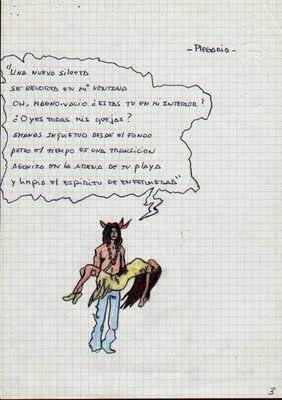 - PLEGARIA -
"UNA NUEVA SILUETA
SE RECORTA EN MI VENTANA
OH, MAGNO-VACIO ¿ESTAS TU EN MI INTERIOR?
¿OYES TODAS MIS QUEJAS?
EMANAS INQUIETUD DESDE EL FONDO
PERO EL TIEMPO ES UNA TRANSICION
AGONITA EN LA ARENA DE TU PLAYA
Y LIMPIA EL ESPIRITU DE ENFERMEDAD"
3